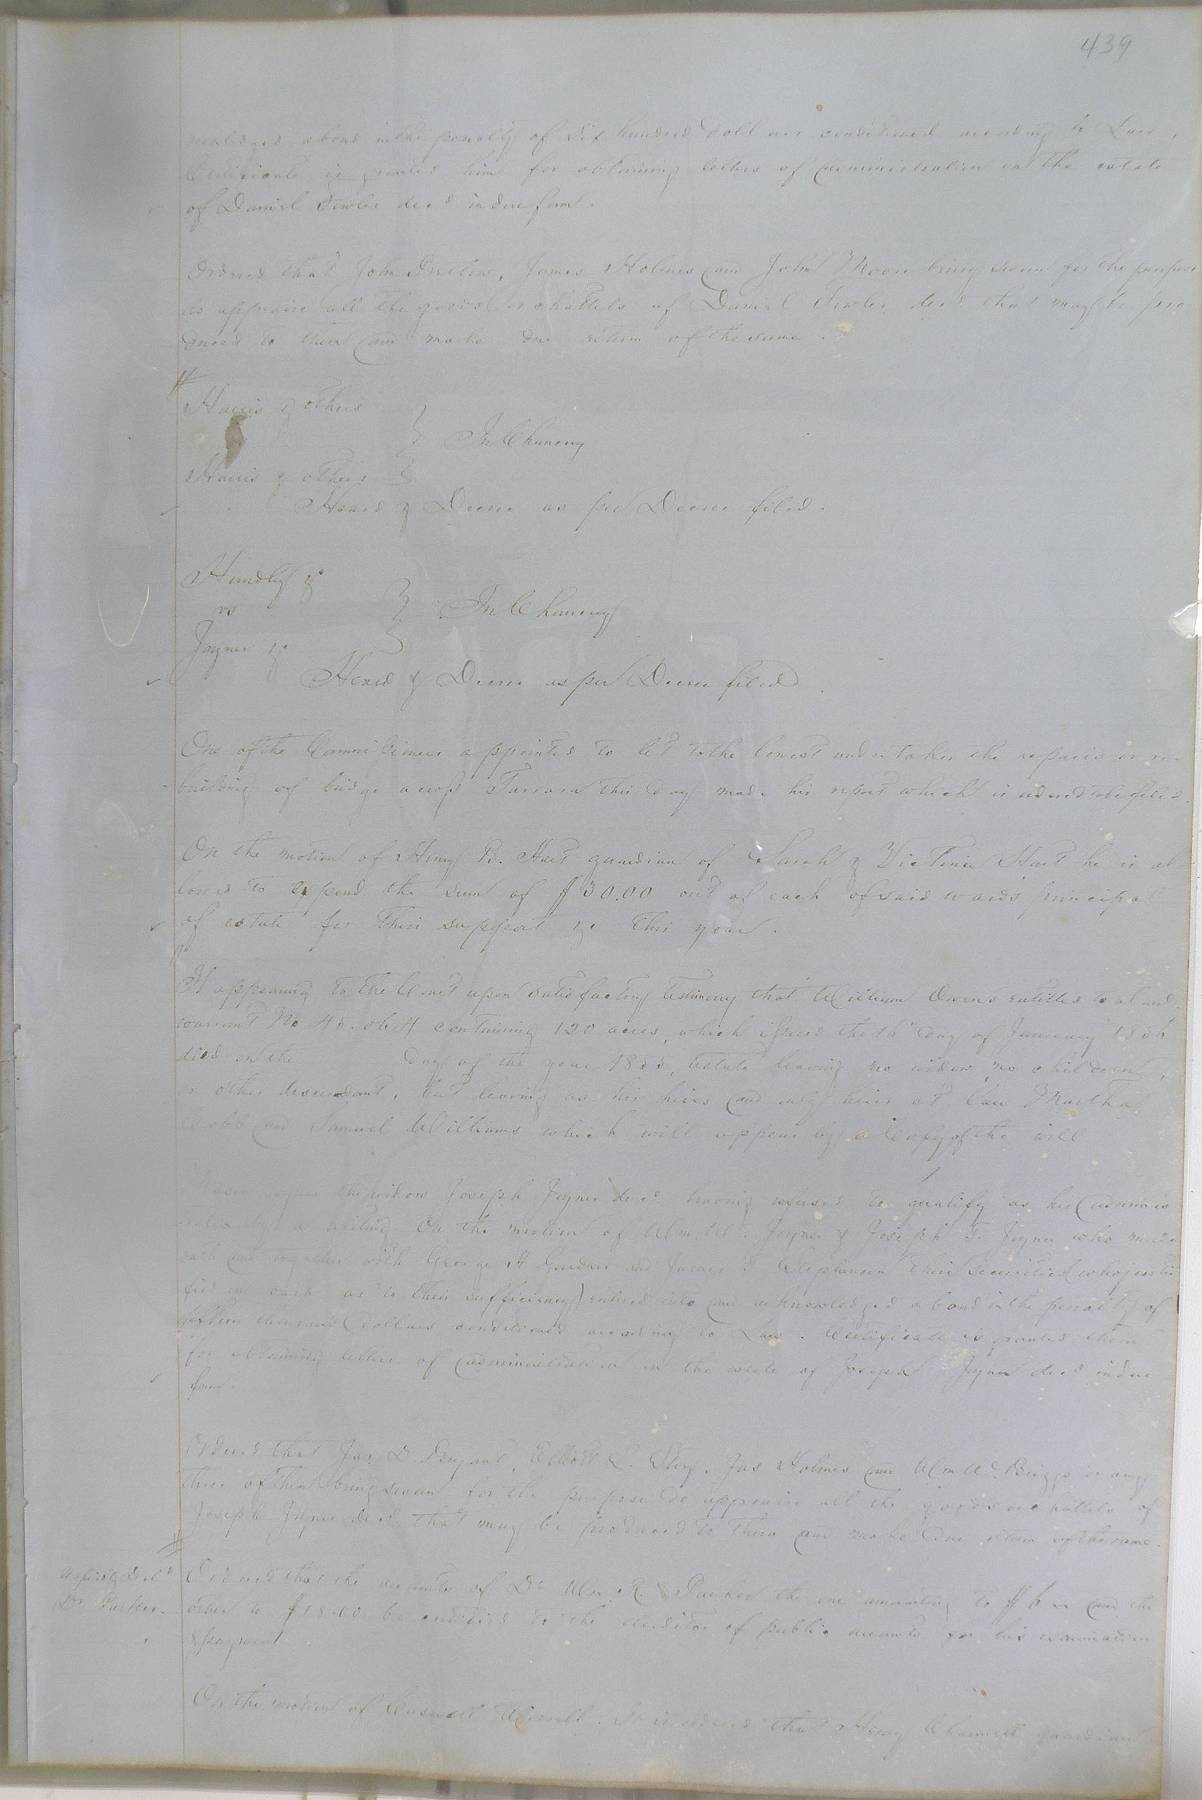 439
a bond in the penalty of Six hundred Dollars conditioned according to Law,
Certificate is granted him for obtaining letters of administration on the estate
of Daniel Fowler decd in due form.
Ordered that John Holmes and John Moore being sworn for the purpose
do appraise all the goods or chattels of Daniel Fowler decd that may be pro
duced to them and make due return of the same.
Harris & others
In Chancery
Harris & others
Heard & Decree as per Decree filed.
Hundley &c
vs
In Chancery
Joyner &c
Heard & Decree as per Decree filed
One of the Commissioners appointed to let to the lowest undertaker the repairs or re-
building of bridge across Tarrara this day made his report which is ordered to be filed.
On the motion of Henry B. Hart guardian of Sarah & Victoria Hart he is al
lowed to expend the sum of $30.00 out of each of said wards principal
of estate for their support &c this year.
It appearing to the Court upon satisfactory testimony that William Owens entitled to a land
warrant No containing 120 acres, which issued the 16 day of January 1856
died on the day of the year 1855, testate leaving no widow, no children,
or other descendant, but leaving as his heirs and only heirs at law Martha
Cobb and Samuel Williams which will appear by a Copy of the will
Joyner the widow Joseph Joyner decd having refused to qualify as his adminis
On the motion of Wm. Joyner & Joseph T. Joyner who made
oath and together with George H Gardner and James Stephenson their securities (who justi
fied on oath as to their sufficiency) entered into and acknowledged a bond in the penalty of
fifteen thousand dollars conditioned according to Law. Certificate is granted them
for obtaining letters of administration on the estate of Joseph Joyner decd in due
form.
Ordered that Jas. D. Bryant, Elliott L. Story, Jas Holmes and Wm. Briggs or any
three of them being sworn for the purpose do appraise all the goods or chattels of
Joseph Joyner decd that may be produced to them and make due return of the same.
Dr. Parker.
Ordered that the accounts of Dr Wm. R. Parker the one amounting to and the
other to be certified to the auditor of public accounts for his examination
& payment
On the motion of It is ordered that Henry guardian